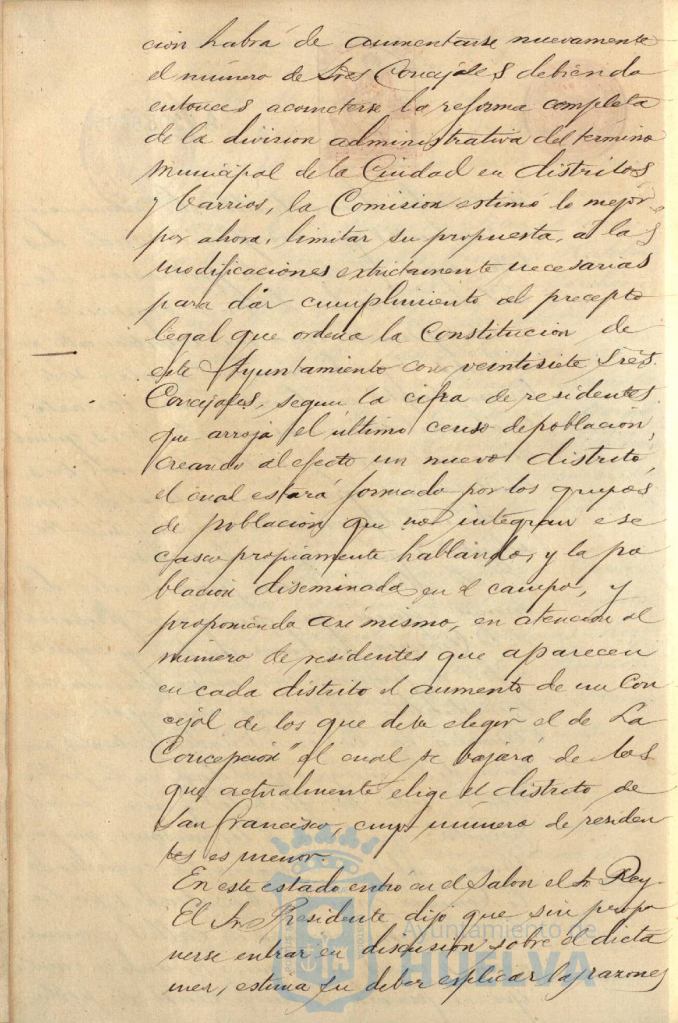 cion habrá de aumentarse nuevamente
el número de tres Concejales debiendo
entonces acometerse la reforma completa
de la division administrativa del termino
Municipal de la Ciudad en distritos
y barrios, la Comision estimó lo mejor
por ahora, limitar su propuesta, a las
modificaciones extrictamente necesarias
para dár cumplimiento al precepto
legal que ordena la Constitucion de
este Ayuntamiento con veintisiete tres
Concejales, segun la cifra de residentes
que arroja el último censo de poblacion,
creando al efecto un nuevo distrito,
el cual estará formado por los grupos
de poblacion que no integran ese
casco propiamente hablando, y la po
blacion diseminada en el campo, y
proponiendo así mismo, en atencion al
número de residentes que aparecen
en cada distrito el aumento de un Con
cejal de los que debe elegir el de La
Concepcion" el cual se bajará de los
que actualmente elige el distrito de
San Francisco, cuyo número de residen
tes es menor.
En este estado entró en el Salon el Sr. Rey.
El Sr. Presidente dijo que sin propo
nerse entrar en discusion sobre el dicta
men, estima su deber esplicar las razones
Ayuntamiento de
HUELVA